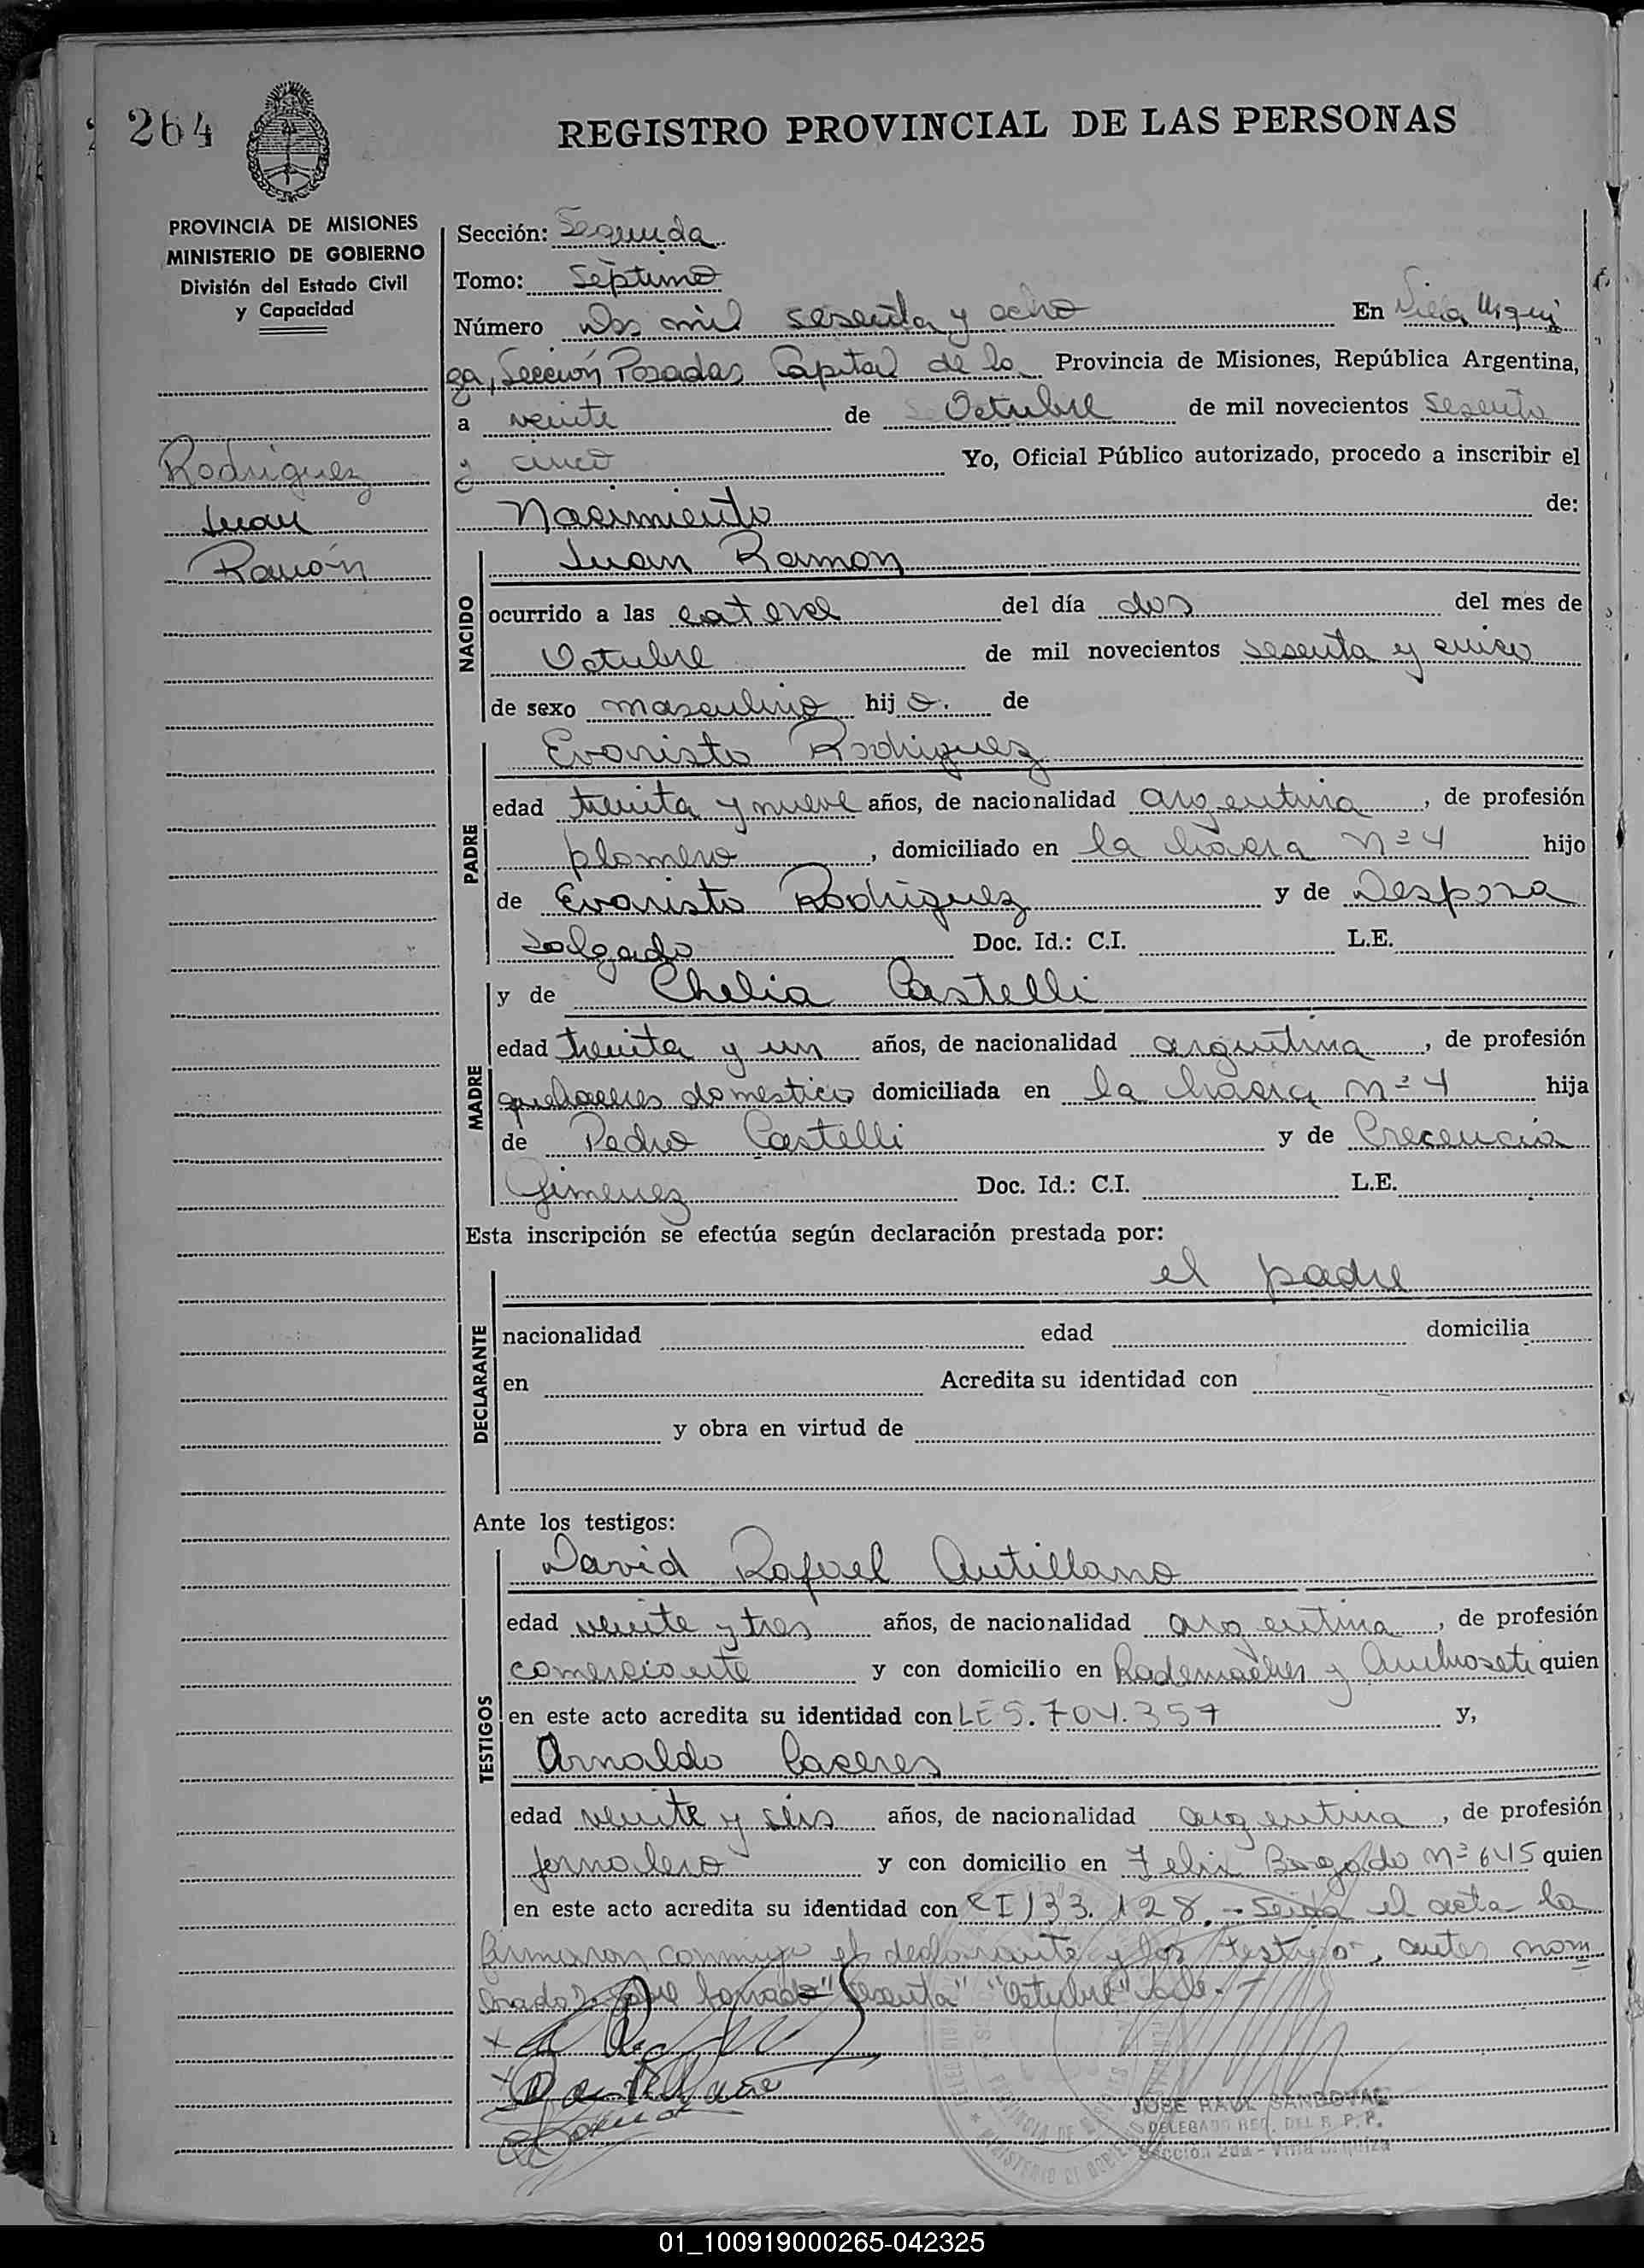 264
REGISTRO PROVINCIAL DE LAS PERSONAS
PROVINCIA DE MISIONES
MINISTERIO DE GOBIERNO
División del Estado Civil
y Capacidad
Rodriguez
Juan
Ramón
Sección: Segunda
Tomo: Septimo
Número Dos mil sesenta y ocho En Villa Urqui
za, Sección Posadas Capital de la Provincia de Misiones, República Argentina,
a veinte de Octubre de mil novecientos sesenta
y cinco Yo, Oficial Público autorizado, procedo a inscribir el
Nacimiento de:
NACIDO
Juan Ramon
ocurrido a las catorce del día dos del mes de
Octubre de mil novecientos sesenta y cinco
de sexo masculino hij o. de
PADRE
Evaristo Rodriguez
edad treinta y nueve años, de nacionalidad argentina, de profesión
plomero, domiciliado en la chacra Nº 4 hijo
de Evaristo Rodriguez y de
Salgado Doc. Id.: C.I. L.E.
MADRE
y de Chelia Castelli
edad treinta y un años, de nacionalidad argentina, de profesión
quehaceres domesticos domiciliada en la chacra Nº 4 hija
de Pedro Castelli y de Crecencia
Gimenez Doc. Id.: C.I. L.E.
Esta inscripción se efectúa según declaración prestada por:
DECLARANTE
el padre
nacionalidad edad domicilia
en Acredita su identidad con
y obra en virtud de
Ante los testigos:
TESTIGOS
David Rafael Antillano
edad veinte y tres años, de nacionalidad argentina, de profesión
comerciante y con domicilio en Rademacher y Ambroseti quien
en este acto acredita su identidad con LE 5.704.357 y,
Arnaldo Caceres
edad veinte y seis años, de nacionalidad argentina, de profesión
jornalero y con domicilio en Felix Bogado Nº 645 quien
en este acto acredita su identidad con CI 133.128.- Leida el acta la
firmaron conmigo el declarante y los testigos, antes nom
brados. Sobre borrado "sesenta" "Octubre" Vale.-
JOSE RAUL SANDOVAL
DELEGADO REG. DEL R. P. P.
Sección 2da - Villa Urquiza
01_100919000265-042325